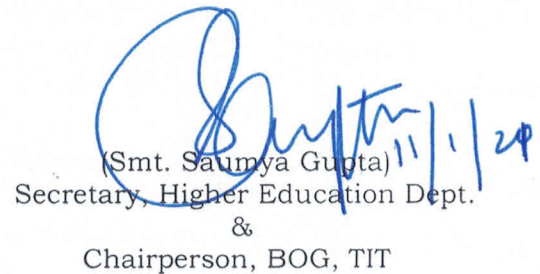 11/1/24
(Smt. Saumya Gupta)
Secretary, Higher Education Dept.
&
Chairperson, BOG, TIT